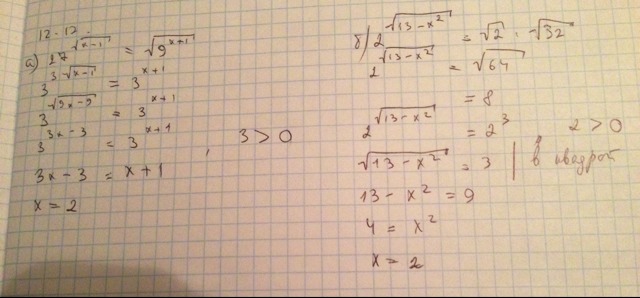 12.12.
а) 27^√(x-1) = √(9^(x+1))
3^(3·√(x-1)) = 3^(x+1)
3^√(9x-9) = 3^(x+1)
3^(3x-3) = 3^(x+1) , 3 > 0
3x - 3 = x + 1
x = 2
б) 2^√(13-x²) = √2 · √32
2^√(13-x²) = √64
= 8
2^√(13-x²) = 2³ 2 > 0
√(13-x²) = 3 | в квадрат
13 - x² = 9
4 = x²
x = 2